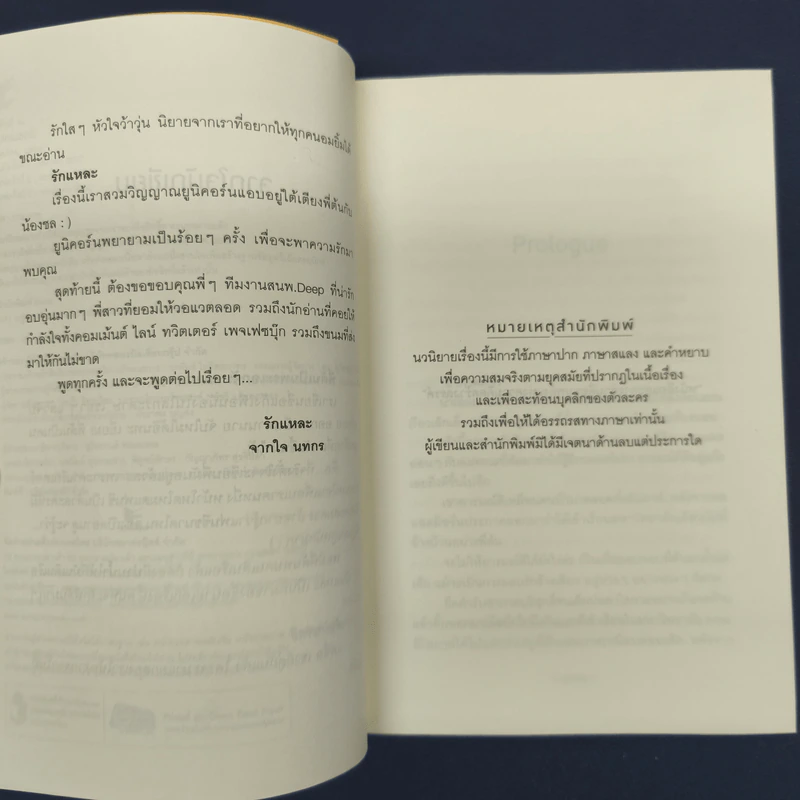 รักใส ๆ หัวใจว้าวุ่น นิยายจากเราที่อยากให้ทุกคนอมยิ้มได้
ขณะอ่าน
รักแหละ
เรื่องนี้เราสวมวิญญาณยูนิคอร์นแอบอยู่ใต้เตียงพี่ต้นกับ
น้องชล : )
ยูนิคอร์นพยายามเป็นร้อย ๆ ครั้ง เพื่อจะพาความรักมา
พบคุณ
สุดท้ายนี้ ต้องขอขอบคุณพี่ ๆ ทีมงานสนพ.Deep ที่น่ารัก
อบอุ่นมาก ๆ พี่สาวที่ยอมให้วอแวตลอด รวมถึงนักอ่านที่คอยให้
กำลังใจทั้งคอมเม้นต์ ไลน์ ทวิตเตอร์ เพจเฟซบุ๊ก รวมถึงขนมที่ส่ง
มาให้กันไม่ขาด
พูดทุกครั้ง และจะพูดต่อไปเรื่อย ๆ...
รักแหละ
จากใจ นทกร
หมายเหตุสำนักพิมพ์
นวนิยายเรื่องนี้มีการใช้ภาษาปาก ภาษาสแลง และคำหยาบ
เพื่อความสมจริงตามยุคสมัยที่ปรากฏในเนื้อเรื่อง
และเพื่อสะท้อนบุคลิกของตัวละคร
รวมถึงเพื่อให้ได้อรรถรสทางภาษาเท่านั้น
ผู้เขียนและสำนักพิมพ์มิได้มีเจตนาด้านลบแต่ประการใด